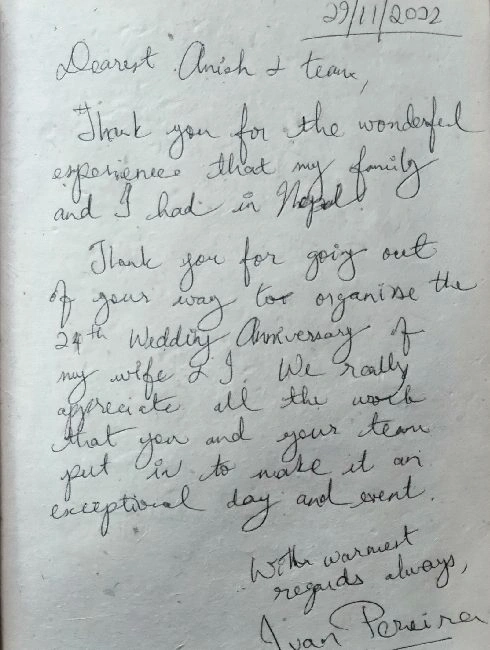 29/11/2022
Dearest Anish & team,
Thank you for the wonderful
experience that my family
and I had in Nepal
Thank you for going out
of your way to organise the
24th Wedding Anniversary of
my wife & I. We really
appreciate all the work
that you and your team
put in to make it an
exceptional day and event.
With warmest
regards always,
Ivan Pereira